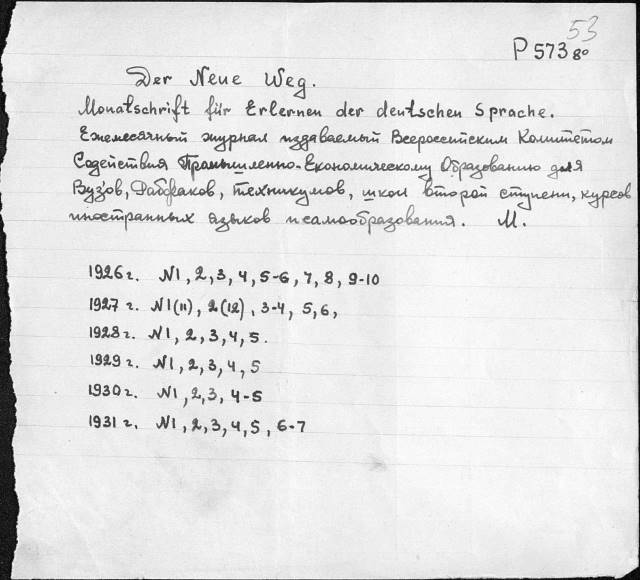 53
P 573 80
Der Neue Weg.
Monatschrift für Erlernen der deutschen Sprache.
Ежемесячный журнал издаваемый Всероссийским Комитетом
Содействия Промышленно-Економическому Образованию для
Вузов, Рабфаков, техникумов, школ второй ступени, курсов
иностранных языков и самообразования. М.
1926 г. N1, 2, 3, 4, 5-6, 7, 8, 9-10
1927 г. N1(11), 2(12), 3-4, 5, 6,
1928 г. N1, 2, 3, 4, 5.
1929 г. N1, 2, 3, 4, 5
1930 г. N1, 2, 3, 4-5
1931 г. N1, 2, 3, 4, 5, 6-7